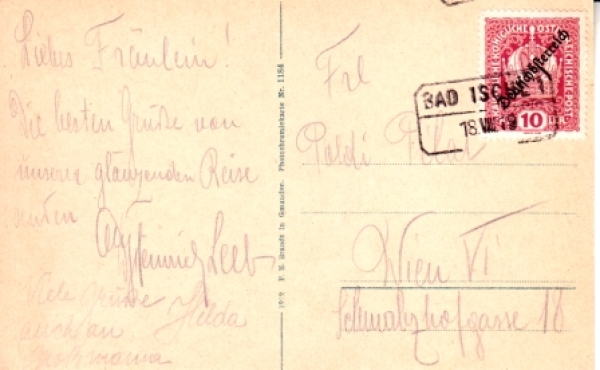 Liebes Fräulein!
Die besten Grüße von
unserer glänzenden Reise
Heinrich Leeb
Viele Grüße Hilda
auch an
Großmama
1912 F. E. Brandt in Gmunden. Photochromiekarte Nr. 1184
Frl
Poldi
Wien VI
Schmalzhofgasse 18
BAD ISCHL 1
18.VII.19
Deutschösterreich
10